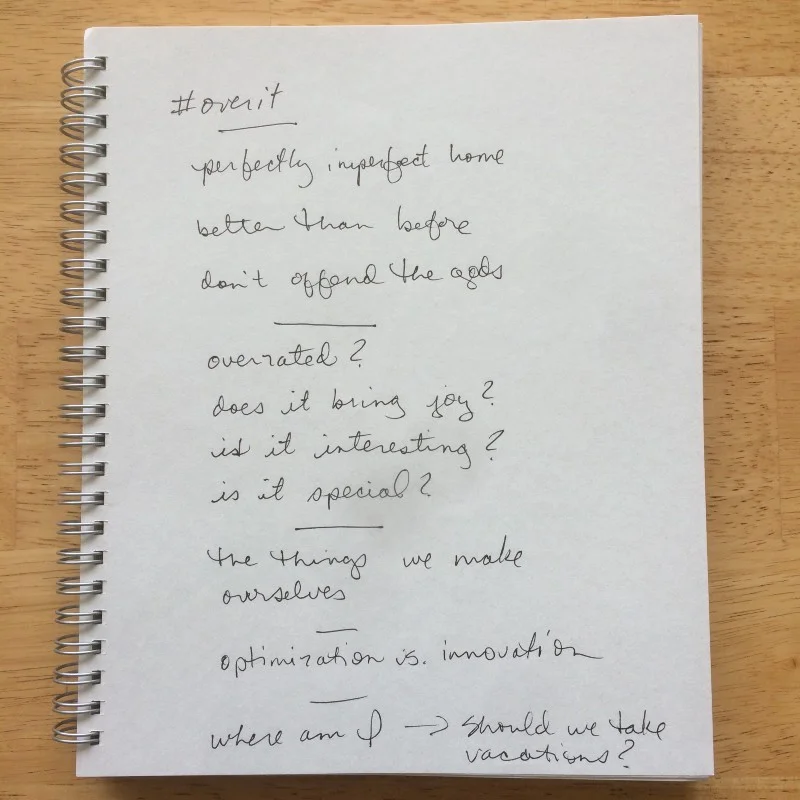 #overit
perfectly imperfect home
better than before
don't offend the gods
overrated?
does it bring joy?
is it interesting?
is it special?
the things we make
ourselves
optimization vs. innovation
where am I → should we take
vacations?